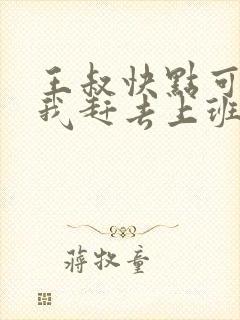 王叔快點可
我赶去上班
蒋牧童